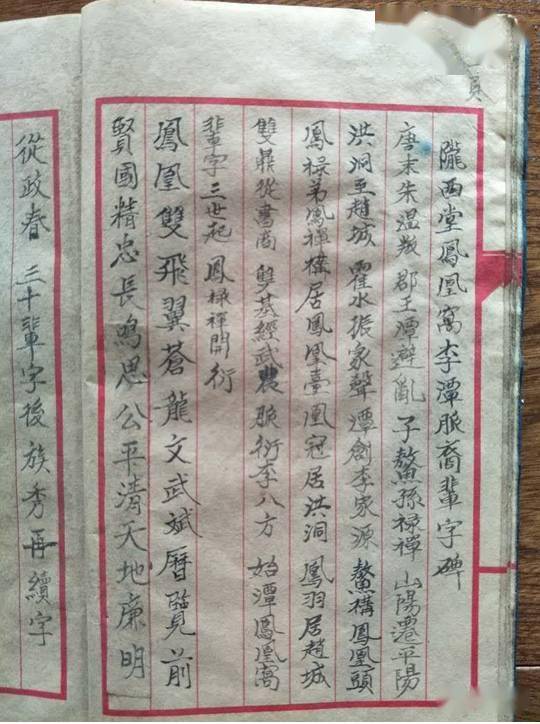 頁
隴西堂鳳凰窩李潭脈裔輩字碑
唐末朱温叛 郡王潭避亂 子鰲孫禄禪 山陽遷平陽
洪洞至趙城 霍水振家聲 潭創李家源 鰲構鳳凰頭
鳳禄弟鳳禪 構居鳳凰臺 凰冠居洪洞 鳳羽居趙城
雙鼎從書商 雙基經武農 脈衍李八方 始潭鳳凰窩
輩字三世起 鳳禄禪開衍
鳳凰雙飛翼蒼龍文武斌曆覽前
賢國精忠長鳴思公平清天地廉明
從政春 三十輩字後族秀再續字